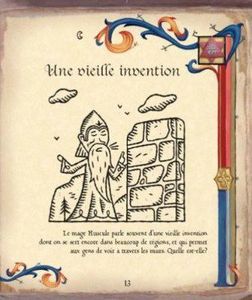 Une vieille invention
Le mage Muscule parle souvent d'une vieille invention
dont on se sert encore dans beaucoup de régions, et qui permet
aux gens de voir à travers les murs. Quelle est-elle?
13